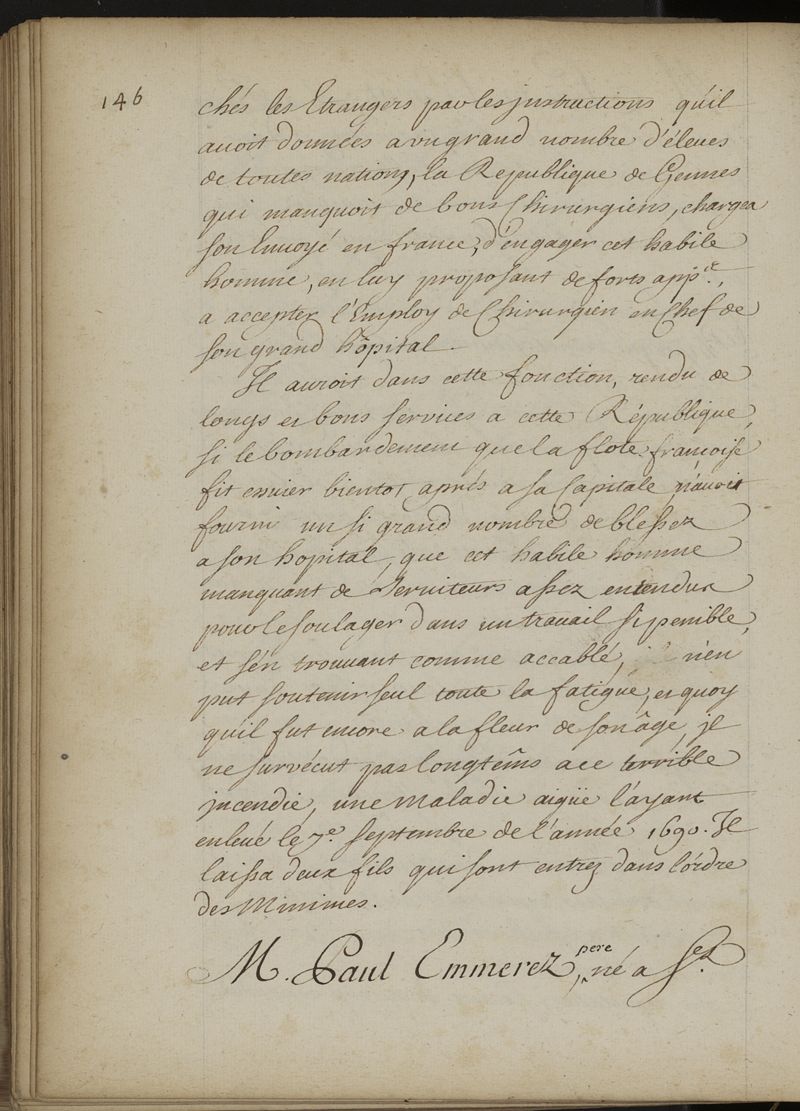 146
chés les Etrangers par les jnstructions qu'il
auoit données a vn grand nombre d'éleues
de toutes nations, la Republique de Gennes
qui manquoit de bons Chirurgiens, chargea
son Enuoyé en france, d'engager cet habile
homme, en luy proposant de forts app.ts,
a accepter l'Employ de Chirurgien en Chef de
son grand hôpital.
Il auroit dans cette fonction, rendu de
longs et bons services a cette République,
si le bombardement que la flote françoise
fit essuier bientot aprés a sa Capitale n'auoit
fourni un si grand nombre de blessez
a son hopital, que cet habile homme
manquant de Seruiteurs assez entendus
pour le soulager dans un trauail si penible,
et s'én trouuant comme accablé, n'en
put soutenir seul toute la fatigue, et quoy
qu'il fut encore a la fleur de son âge, jl
ne survécut pas longtem̂s a ce terrible
jncendie, une maladie aigüe l'ayant
enleué le 7.e septembre de l'année 1690. Il
laissa deux fils qui sont entrez dans l'órdre
des Minimes.
M. Paul Emmerez, pere né a S.t